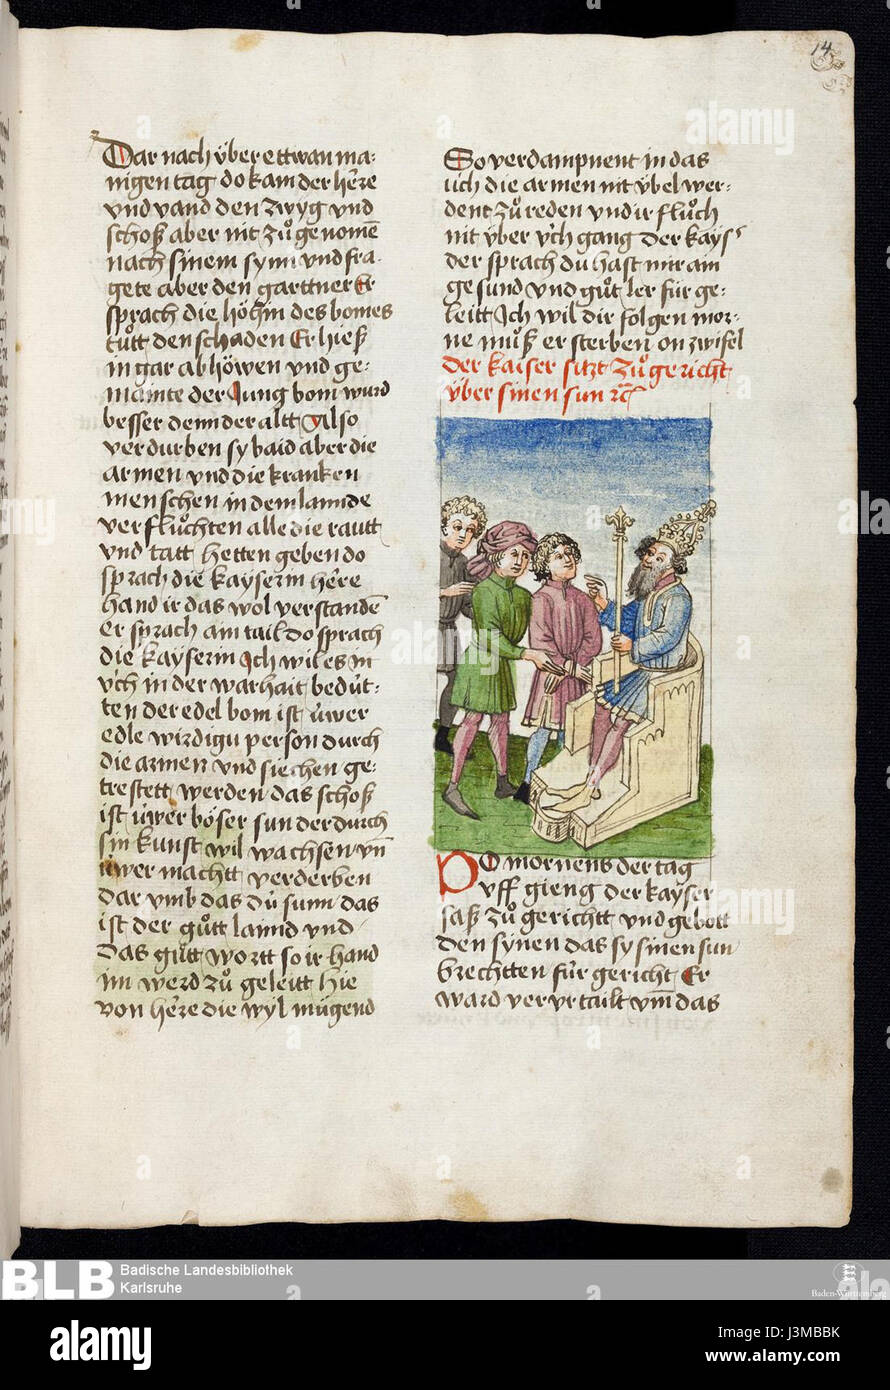 14
Dar nach ÿber ettwan ma-
nigen tag do kam der herre
vnd vand den zwÿg vnd
schoß aber nit zů genomē
nach sinem synn vnd fra-
gete aber den garttner Er
sprach die höhin des bomes
tůtt den schaden Er hieß
in gar ab höwen vnd ge-
mainte der Jung bom wurd
besser denn der altt Also
verdurben sy baid aber die
armen vnd die kranken
menschen in dem lannde
verflůchten alle die rautt
vnd tatt hetten geben do
sprach die kayserin herre
hand ir das wol verstandē
Er sprach am tail do sprach
die kayserin Ich wil es in
v̈ch in der warhait bedüt-
ten der edel bom ist üwer
edle wirdigu person durch
die armen vnd siechen ge-
trestett werden das schoß
ist üwer böser sun der durch
sin kunst wil wachsen vn̄
üwer machtt verderben
dar vmb das dü sunn das
ist der gůtt lannd vnd
das gůtt wortt so ir hand
im werd zů geleitt hie
von herre die wÿl mügend
So verdampnent in das
üch die armen nit ÿbel wer-
dent zů reden vnd ir flůch
nit ÿber v̈ch gang der kays
der sprach du hast mir am
gesund vnd gůt ler für ge-
leitt Ich wil dir folgen mor-
ne můß er sterben on zwifel
der kaiser sitzt zů gericht
ÿber sinen sun rc
DO mornens der tag
vff gieng der kaÿser
saß zů gerichtt vnd gebott
den synen das sy sinen sun
brechtten für gericht Er
ward verurtailt vm̄ das
BLB
Badische Landesbibliothek
Karlsruhe
Baden-Württemberg
alamy
Image ID: J3MBBK
www.alamy.com